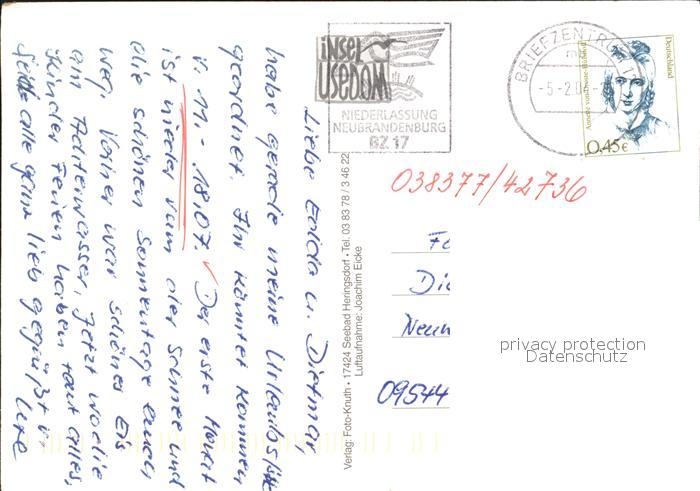 Liebe Edda u. Dietmar,
habe gerade meine Urlaubs
geordnet. Ihr könntet kommen
v. 11. - 18.07. Der erste Monat
ist wieder rum der Schnee und
die schönen Sonnentage auch
weg. Vorher war schönes Eis
am Achterwasser, jetzt wo die
Kinder Ferien haben taut alles,
Seid alle ganz lieb gegrüßt v.
Ute
INSEL
USEDOM
NIEDERLASSUNG
NEUBRANDENBURG
BZ 17
BRIEFZENTRUM 17
Deutschland
Annette von Droste-Hülshoff
0,45 €
038377/42736
Verlag: Foto-Knuth • 17424 Seebad Heringsdorf • Tel. 03 83 78 / 3 46 22
Luftaufnahme: Joachim Eicke
Neun
09544
privacy protection
Datenschutz